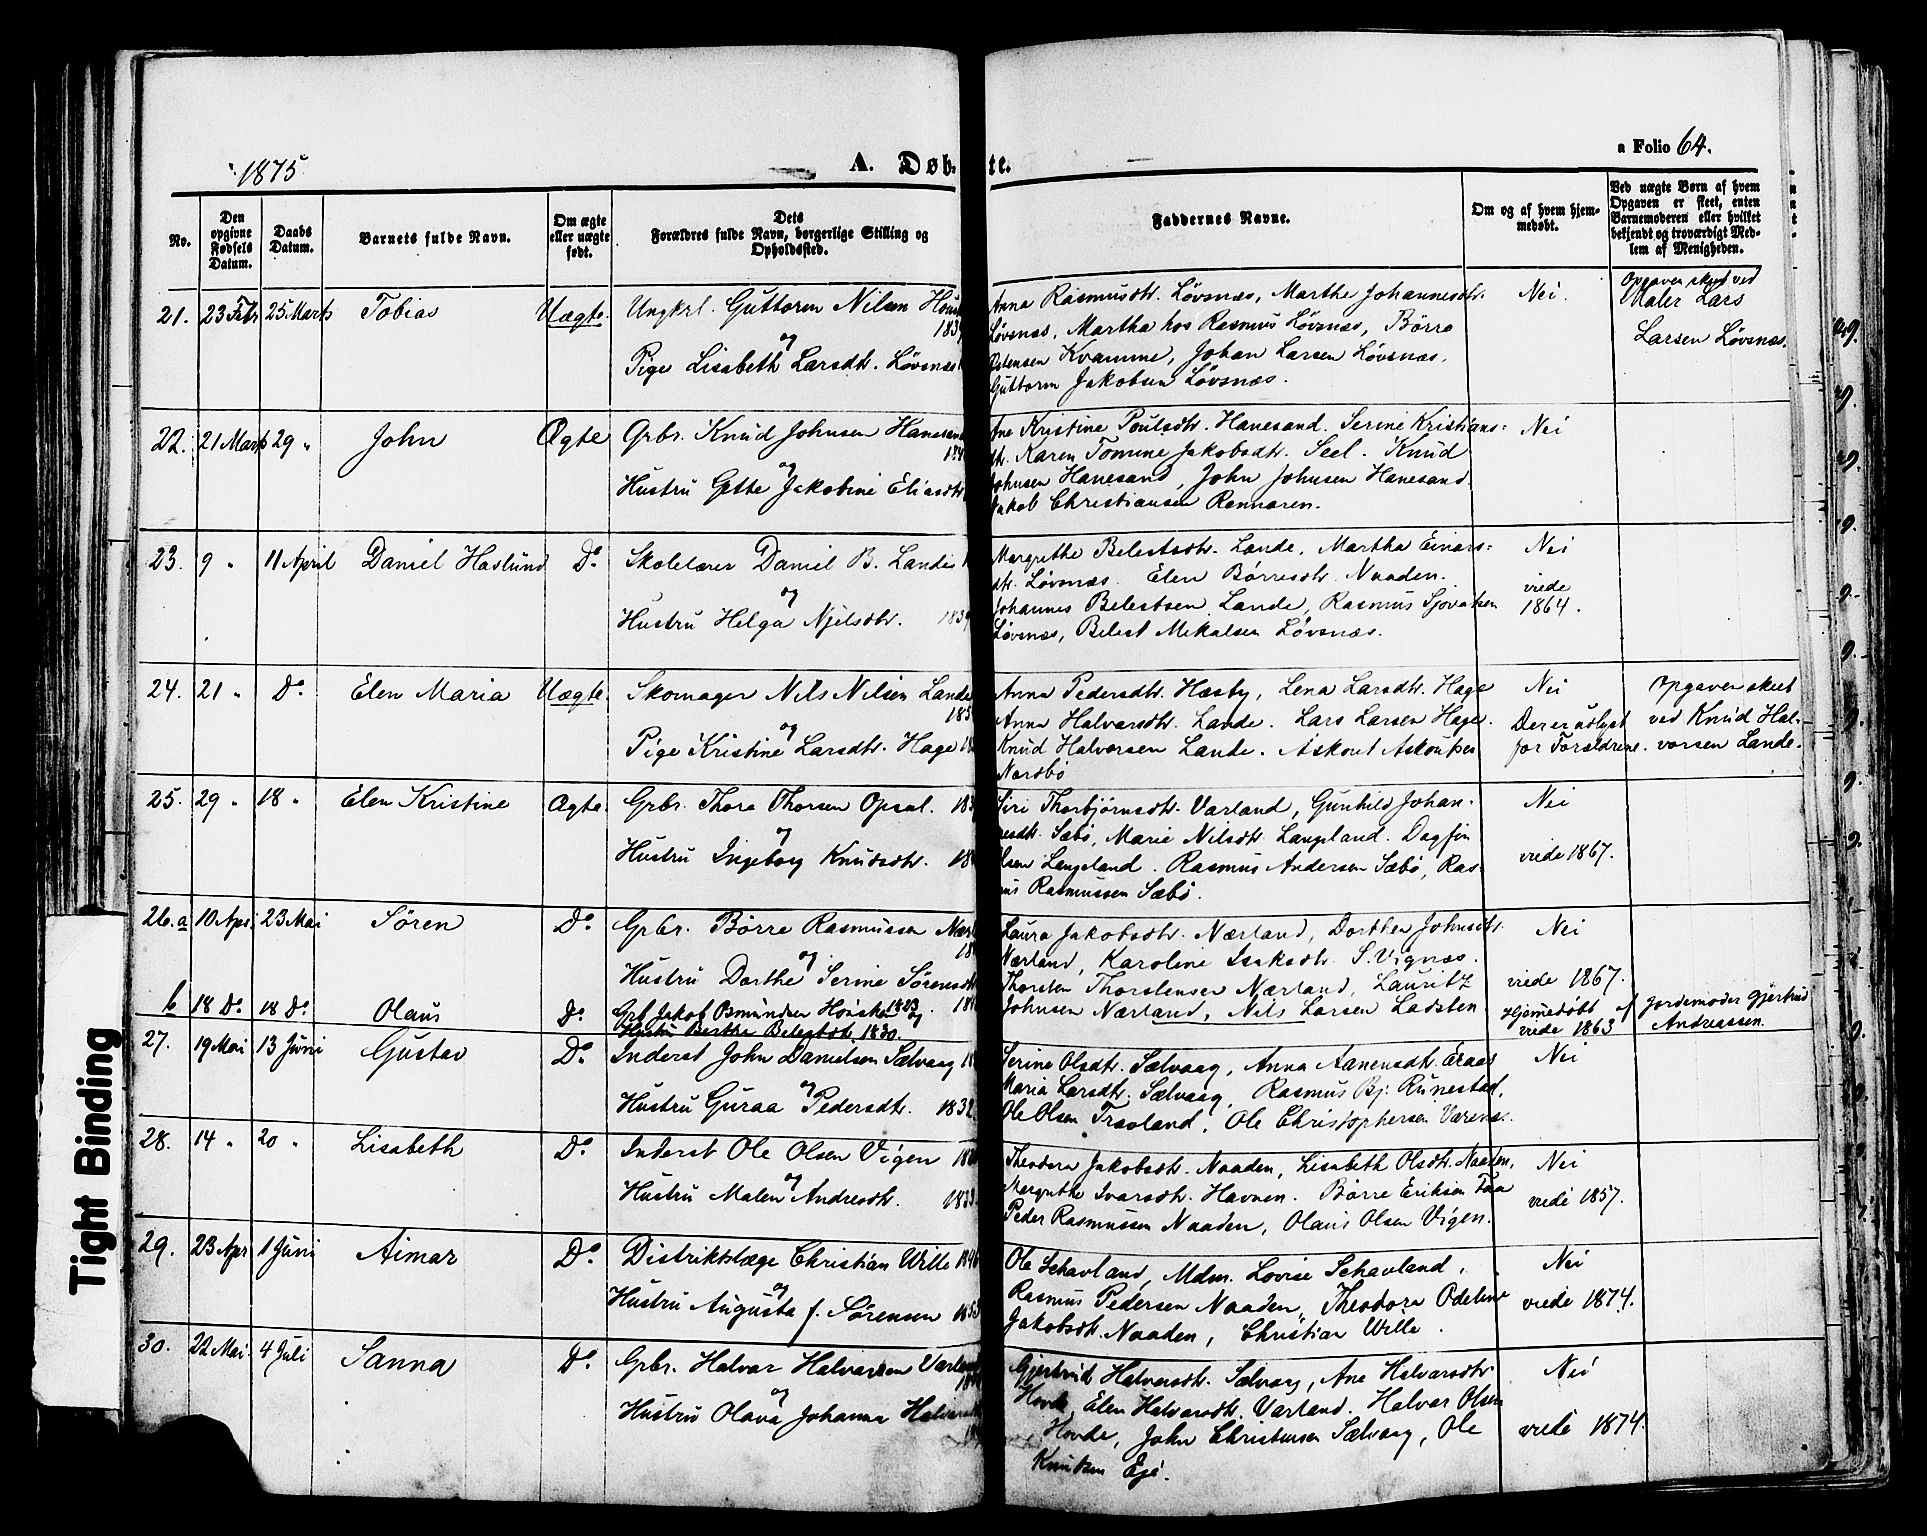 1875
A. Døb
te.
a Folio 64.
No.
Den opgivne Fødsels Datum.
Daabs Datum.
Barnets fulde Navn.
Om ægte eller uægte født.
Dets Forældres fulde Navn, borgerlige Stilling og Opholdssted.
Faddernes Navne.
Om og af hvem hjemmedøbt.
Ved uægte Børn af hvem Opgaven er skeet, enten Barnemoderen eller hvilket bekjendt og troværdigt Medlem af Menigheden.
21. 23 Febr 25 Marts Tobias Uægte. Ungkrl. Guttorm Nilsen
og
Pige Lisabeth Larsdtr. Løvsnæs
Anna Rasmusdtr. Løvsnæs, Marthe Johannesdtr.
Løvsnæs, Martha hos Rasmus Løvsnæs, Børre
Ostensen Kvamme, Johan Larsen Løvsnæs.
Guttorm Jakobsen Løvsnæs.
Nei.
Opgaven skeet ved
Maler Lars
Larsen Løvsnæs.
22. 21 Marts 29 " John Ægte Grbr. Knud Johnsen Hanesand
og
Hustru Gitte Jakobine Eliasdtr.
Ane Kristine Poulsdtr. Hanesand. Serine Kristians=
dtr. Karen Tomine Jakobsdtr. Seel. Knud
Johnsen Hanesand, John Johnsen Hanesand.
Jakob Christiansen Rennaren.
Nei
23. 9 " 11 April Daniel Haslund Do. Skolelærer Daniel B. Landes
og
Hustru Helga Njelsdtr. 1839
Margrethe Belestsdtr. Lande, Martha Einars=
dtr. Løvsnæs. Elen Børresdtr. Naaden.
Johannes Belestsen Lande, Rasmus Sjovatsen
Løvsnæs, Belest Mikalsen Løvsnæs.
Nei
viede
1864.
24. 21 " Do. Elen Maria Uægte. Skomager Nils Nilsen Lande
og
Pige Kristine Larsdtr. Hage
Anna Pedersdtr. Hæsby, Lena Larsdtr. Hage
Anna Halvarsdtr. Lande. Lars Larsen Hage.
Knud Halvorsen Lande. Askout Askoutsen
Nordbø
Nei
Der er udlyst
for Forældrene.
Opgaven skeet
ved Knud Hal-
vorsen Lande.
25. 29 " 18 " Elen Kristine Ægte. Grbr. Thore Thorsen Opsal.
og
Hustru Ingeborg Knudsdtr.
Siri Thorbjørnsdtr. Varland, Gunhild Johan-
nesdtr. Sæbø, Marie Nilsdtr. Langeland. Dagfin
Olsen Langeland. Rasmus Andersen Sæbø, Ras-
mus Rasmussen Sæbø.
Nei
viede 1867.
26. a 10 Apr. 23 Mai Søren Do. Grbr. Børre Rasmussen
og
Hustru Dorthe Serine Sørensdtr
Laura Jakobsdtr. Nærland, Dorthea Johnsdtr.
Nærland, Karoline Isaksdtr. S. Vignæs.
Thorsten Thorstensen Nærland, Lauritz
Johnsen Nærland, Nils Larsen Ladsten.
Nei
viede 1867.
b 18 Do. 18 Do. Olaus Do. Grb Jakob Osmundsen 1823 og
Hustru Berthe Belestsdtr 1830.
Hjemmedøbt af
viede 1863
Jordemoder Gjertrud
Andreassen.
27. 19 Mai 13 Juni Gustav Do. Inderst John Danielsen Sælvaag
og
Hustru Guraa Pedersdtr. 1832
Serine Olsdtr. Sælvaag, Anna Aanensdtr. Eraas
Maria Larsdtr. Sælvaag, Rasmus Bj. Runestad,
Ole Olsen Travland, Ole Christophersen Varenæs.
Nei
28. 14 " 20 " Lisabeth Do. Inderst Ole Olsen Vigen
og
Hustru Malen Andresdtr. 1833
Theodora Jakobsdtr. Naaden, Lisabeth Olsdtr. Naaden,
Margrethe Ivarsdtr. Havnen. Børre Eriksen Faa
Peder Rasmussen Naaden, Olaus Olsen Vigen.
Nei
viede 1857.
29. 23 Apr 1 Juni Aimar Do. Distriktslæge Christian Wille 1846
og
Hustru Augusta f. Sørensen 1853
Ole Schavland, Mdm. Lovise Schavland,
Rasmus Pedersen Naaden, Theodora Odeline
Jakobsdtr. Naaden, Christian Wille.
Nei
viede 1874.
30. 22 Mai. 4 Juli Sanna Do. Grbr. Halvar Halvarsen Varland
og
Hustru Olava Johanna Halvarsdtr
Gjertrud Halversdtr. Sælvaag, Ane Halvarsdtr.
Hovde, Elen Halvarsdtr. Varland. Halvar Olsen
Hovde, John Christensen Sælvaag, Ole
Knutsen Eje.
Nei
viede 1874.
Tight Binding